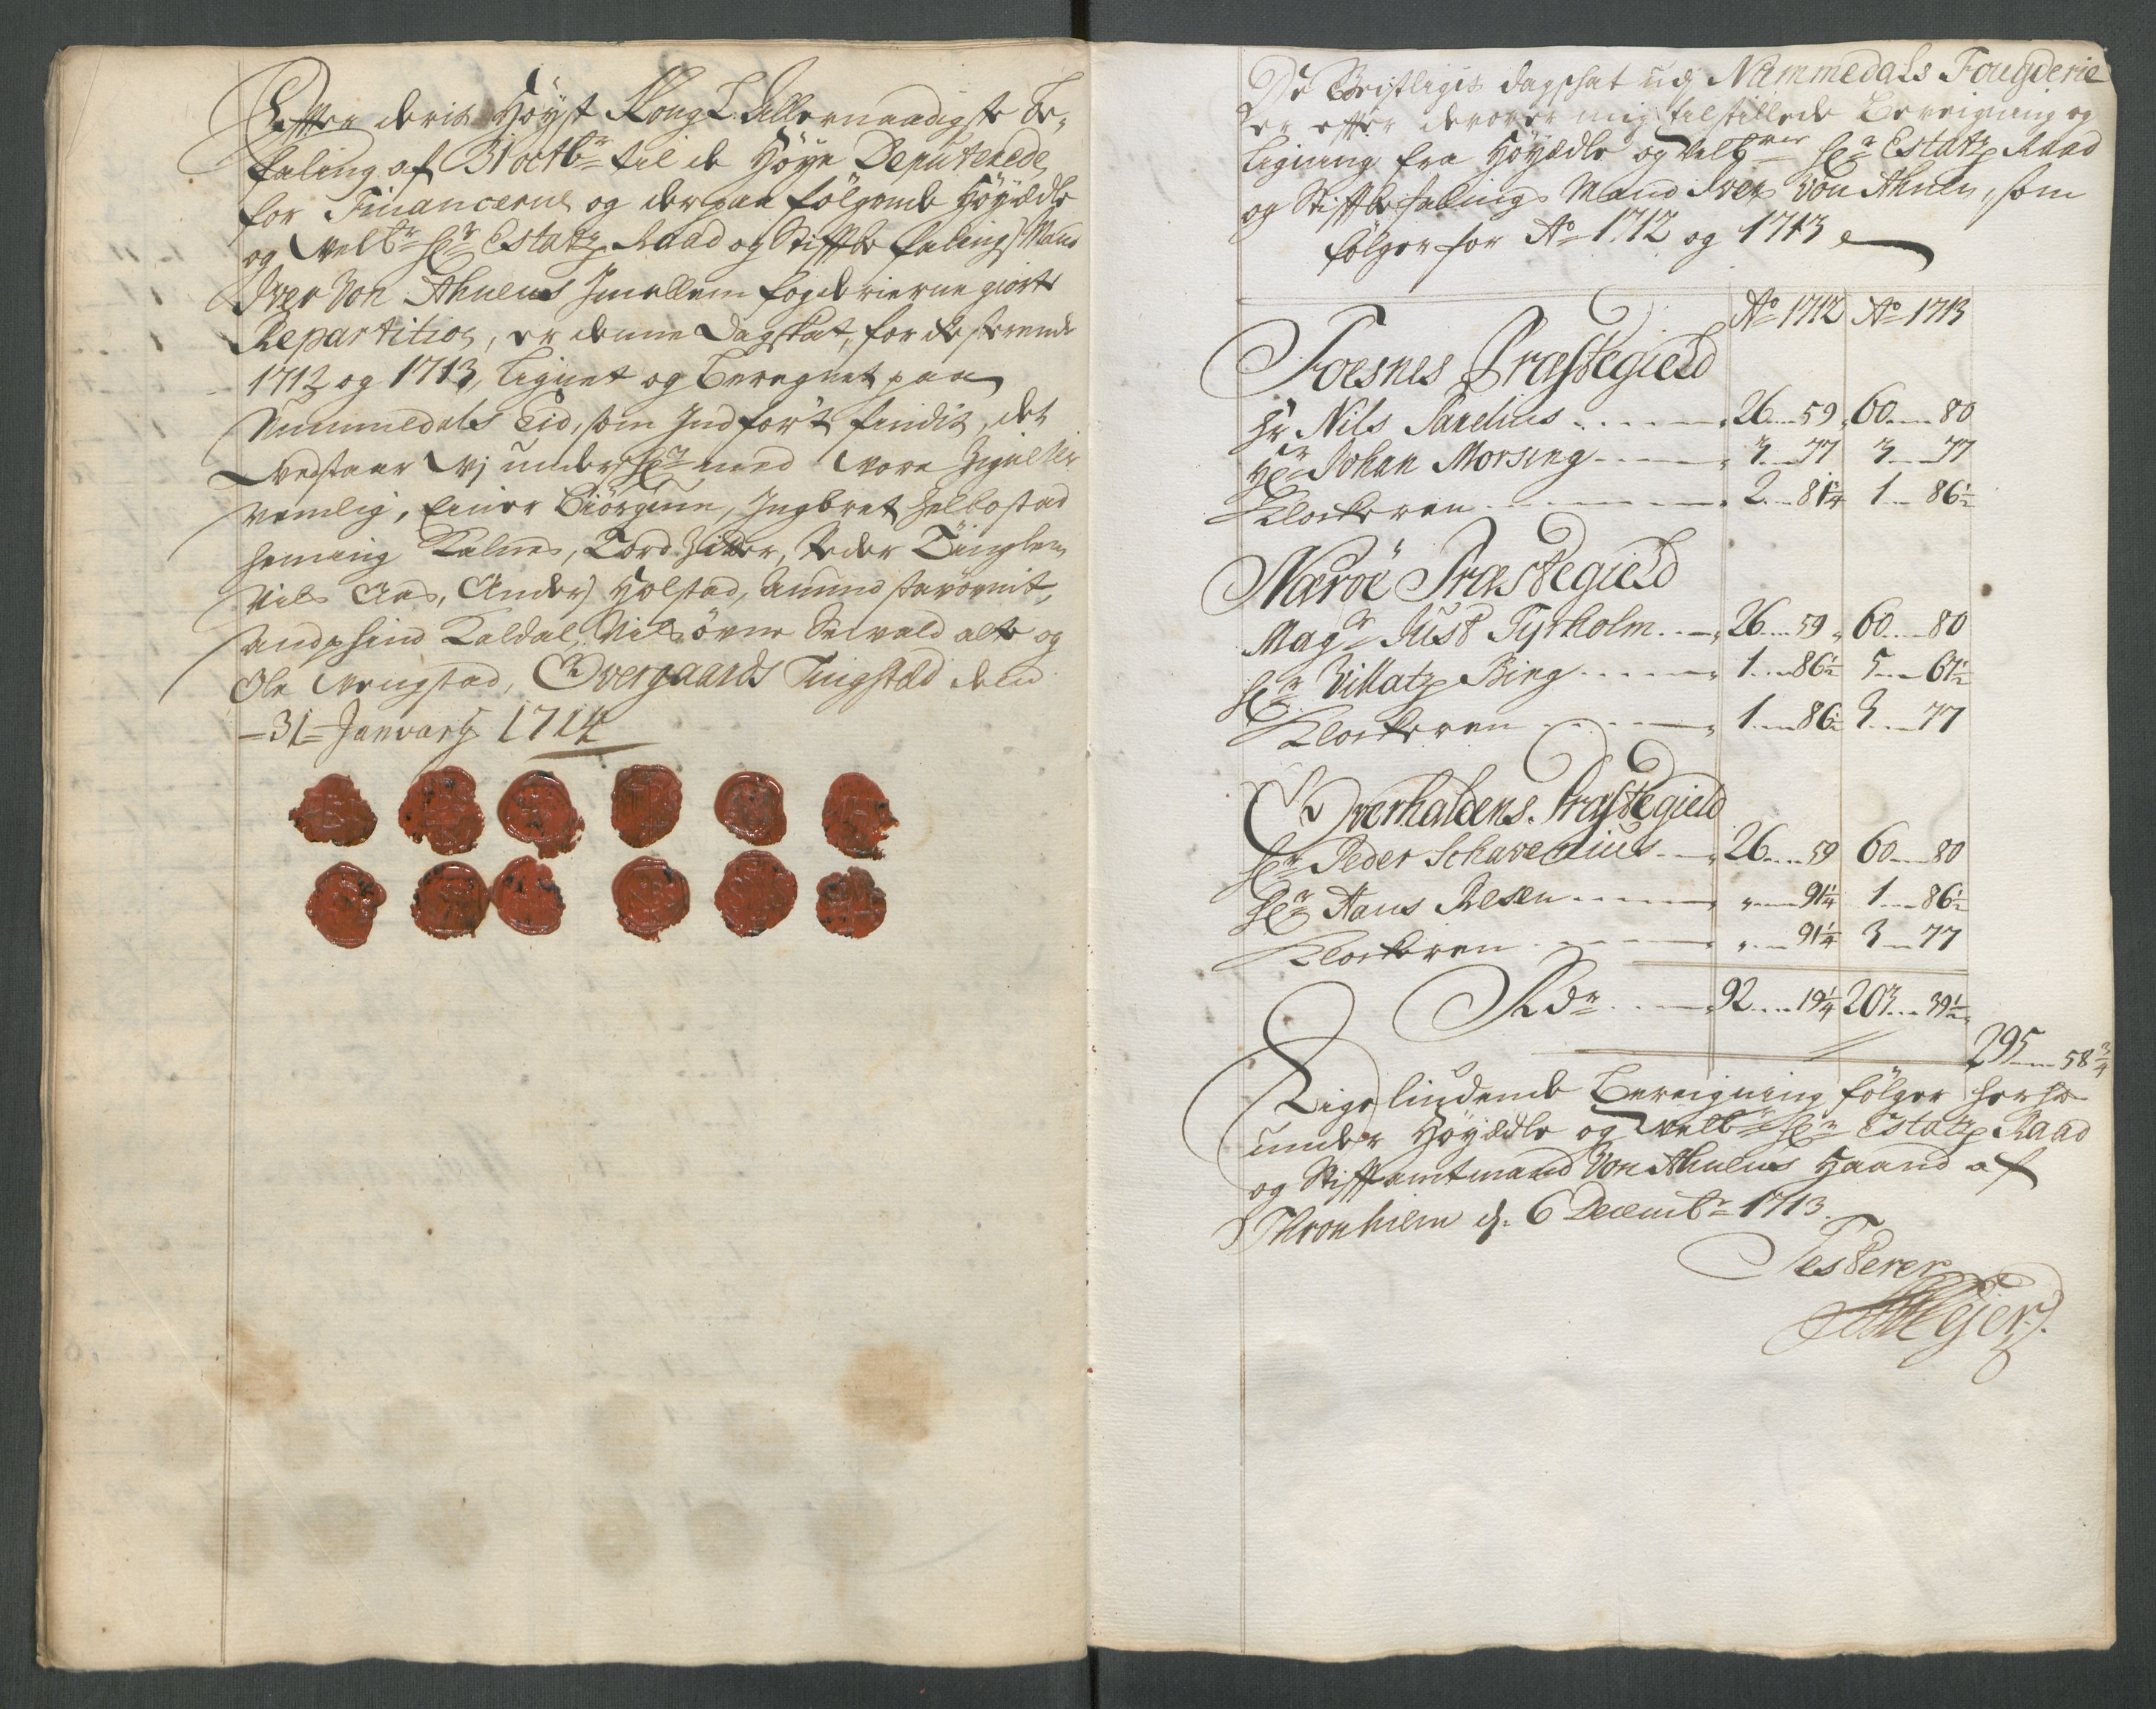 Effter deris Høyst Kongl. Allernaadigste be-
faling af 31 octbr til de Høye Deputerede
for Financerne og derpaa følgende Høyædle
og Velbr Hr Estatz Raad og Stifftbefalings Mand
Iver Von Ahnens Imellem fogderierne giorte
Repartition, er denne Dagskat, for de
1712 og 1713, lignet og beregnet paa
Nummedals Eid, som Indført findis, det
vedstaar Vj under med vore Zignetter
nemlig, Einer Biörgum, Ingbret Helbostad
Heming Kalnes, Tord Zitter, Peder Tinglem
Nils Aas, Anders Holstad, Amund
Kaldal, Nils Øvre Servold alte og
Ole Vengstad, Overgaards Tingsted den
31 January 1714
De Geistliges dagschat udj Nummedals Fougderie
er effter derover mig tilstillede Bereigning og
Ligning fra Høyædle og Velbrne Hr Estatz Raad
og Stifftbefalings Mand Iver Von Ahnen, som
følger for Ao 1712 og 1713
Ao 1712 Ao 1713
Foesnes Præstegield
Hr Nils Parelius 26 59 60 80
Hr Johan Morsing 3 77 3 77
Klockeren 2 81 1/4 1 86 1/2
Nærøe Præstegield
Magr Just Tyrholm 26 59 60 80
Hr Villatz Bing 1 86 1/2 5 67 1/2
Klockeren 1 86 1/2 3 77
Overhaldens Præstegield
Hr Peder Schavenius 26 59 60 80
Hr Hans Resen 91 1/4 1 86 1/2
Klockeren 91 1/4 3 77
Rdr 92 19 1/4 203 39 1/2
295 58 3/4
Lige liudende Bereigning følger herhos
under Høyædle og Velbr Hr Estatz Raad
og Stifftamtmand Von Ahnens Haand af
Thronhiem d. 6 Decembr 1713.
Testerer